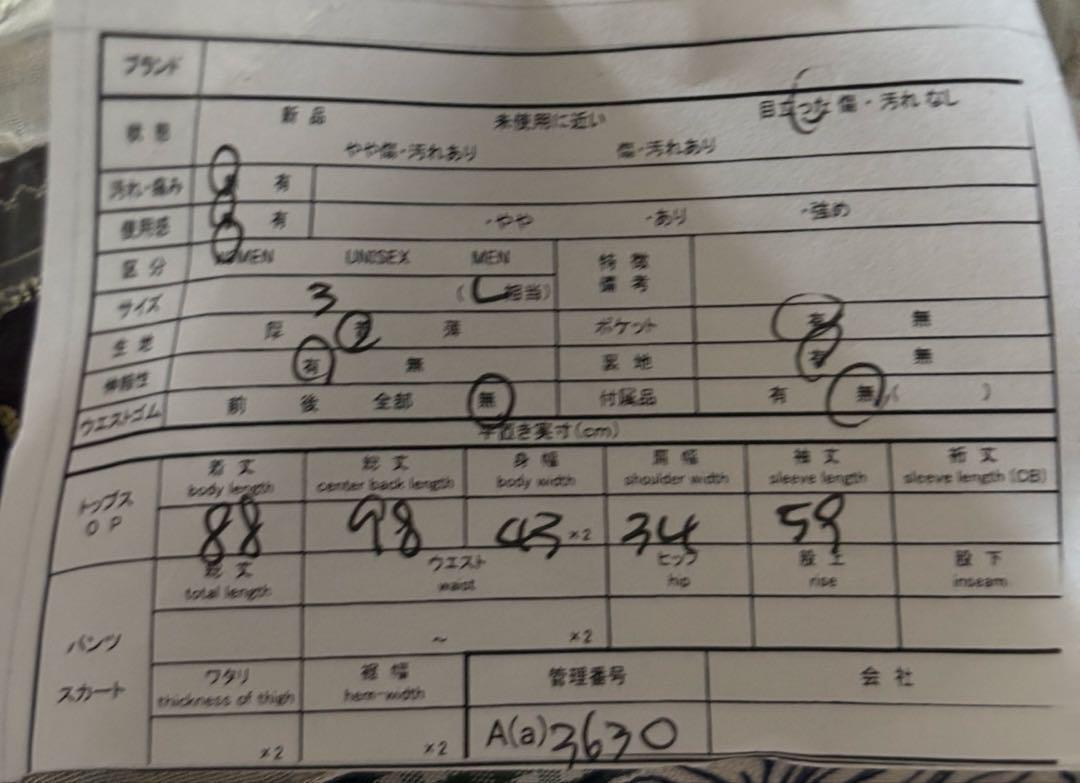 ブランド
状態 新品 未使用に近い 目立った傷・汚れなし
やや傷・汚れあり 傷・汚れあり
汚れ・痛み 有
使用感 有 ・やや ・あり ・強め
区分 WOMEN UNISEX MEN 特徴
備考
サイズ 3 (L相当)
生地 厚 薄 ポケット 有 無
伸縮性 有 無 裏地 有 無
ウエストゴム 前 後 全部 無 付属品 有 無 ( )
平置き実寸(cm)
着丈 総丈 身幅 肩幅 袖丈 裄丈
body length center back length body width shoulder width sleeve length sleeve length (CB)
トップス
OP
88 98 43 ×2 34 59
総丈 ウエスト ヒップ 股上 股下
total length waist hip rise inseam
パンツ ~ ×2
スカート
ワタリ 裾幅 管理番号 会社
thickness of thigh hem-width
×2 ×2 A(a)3630